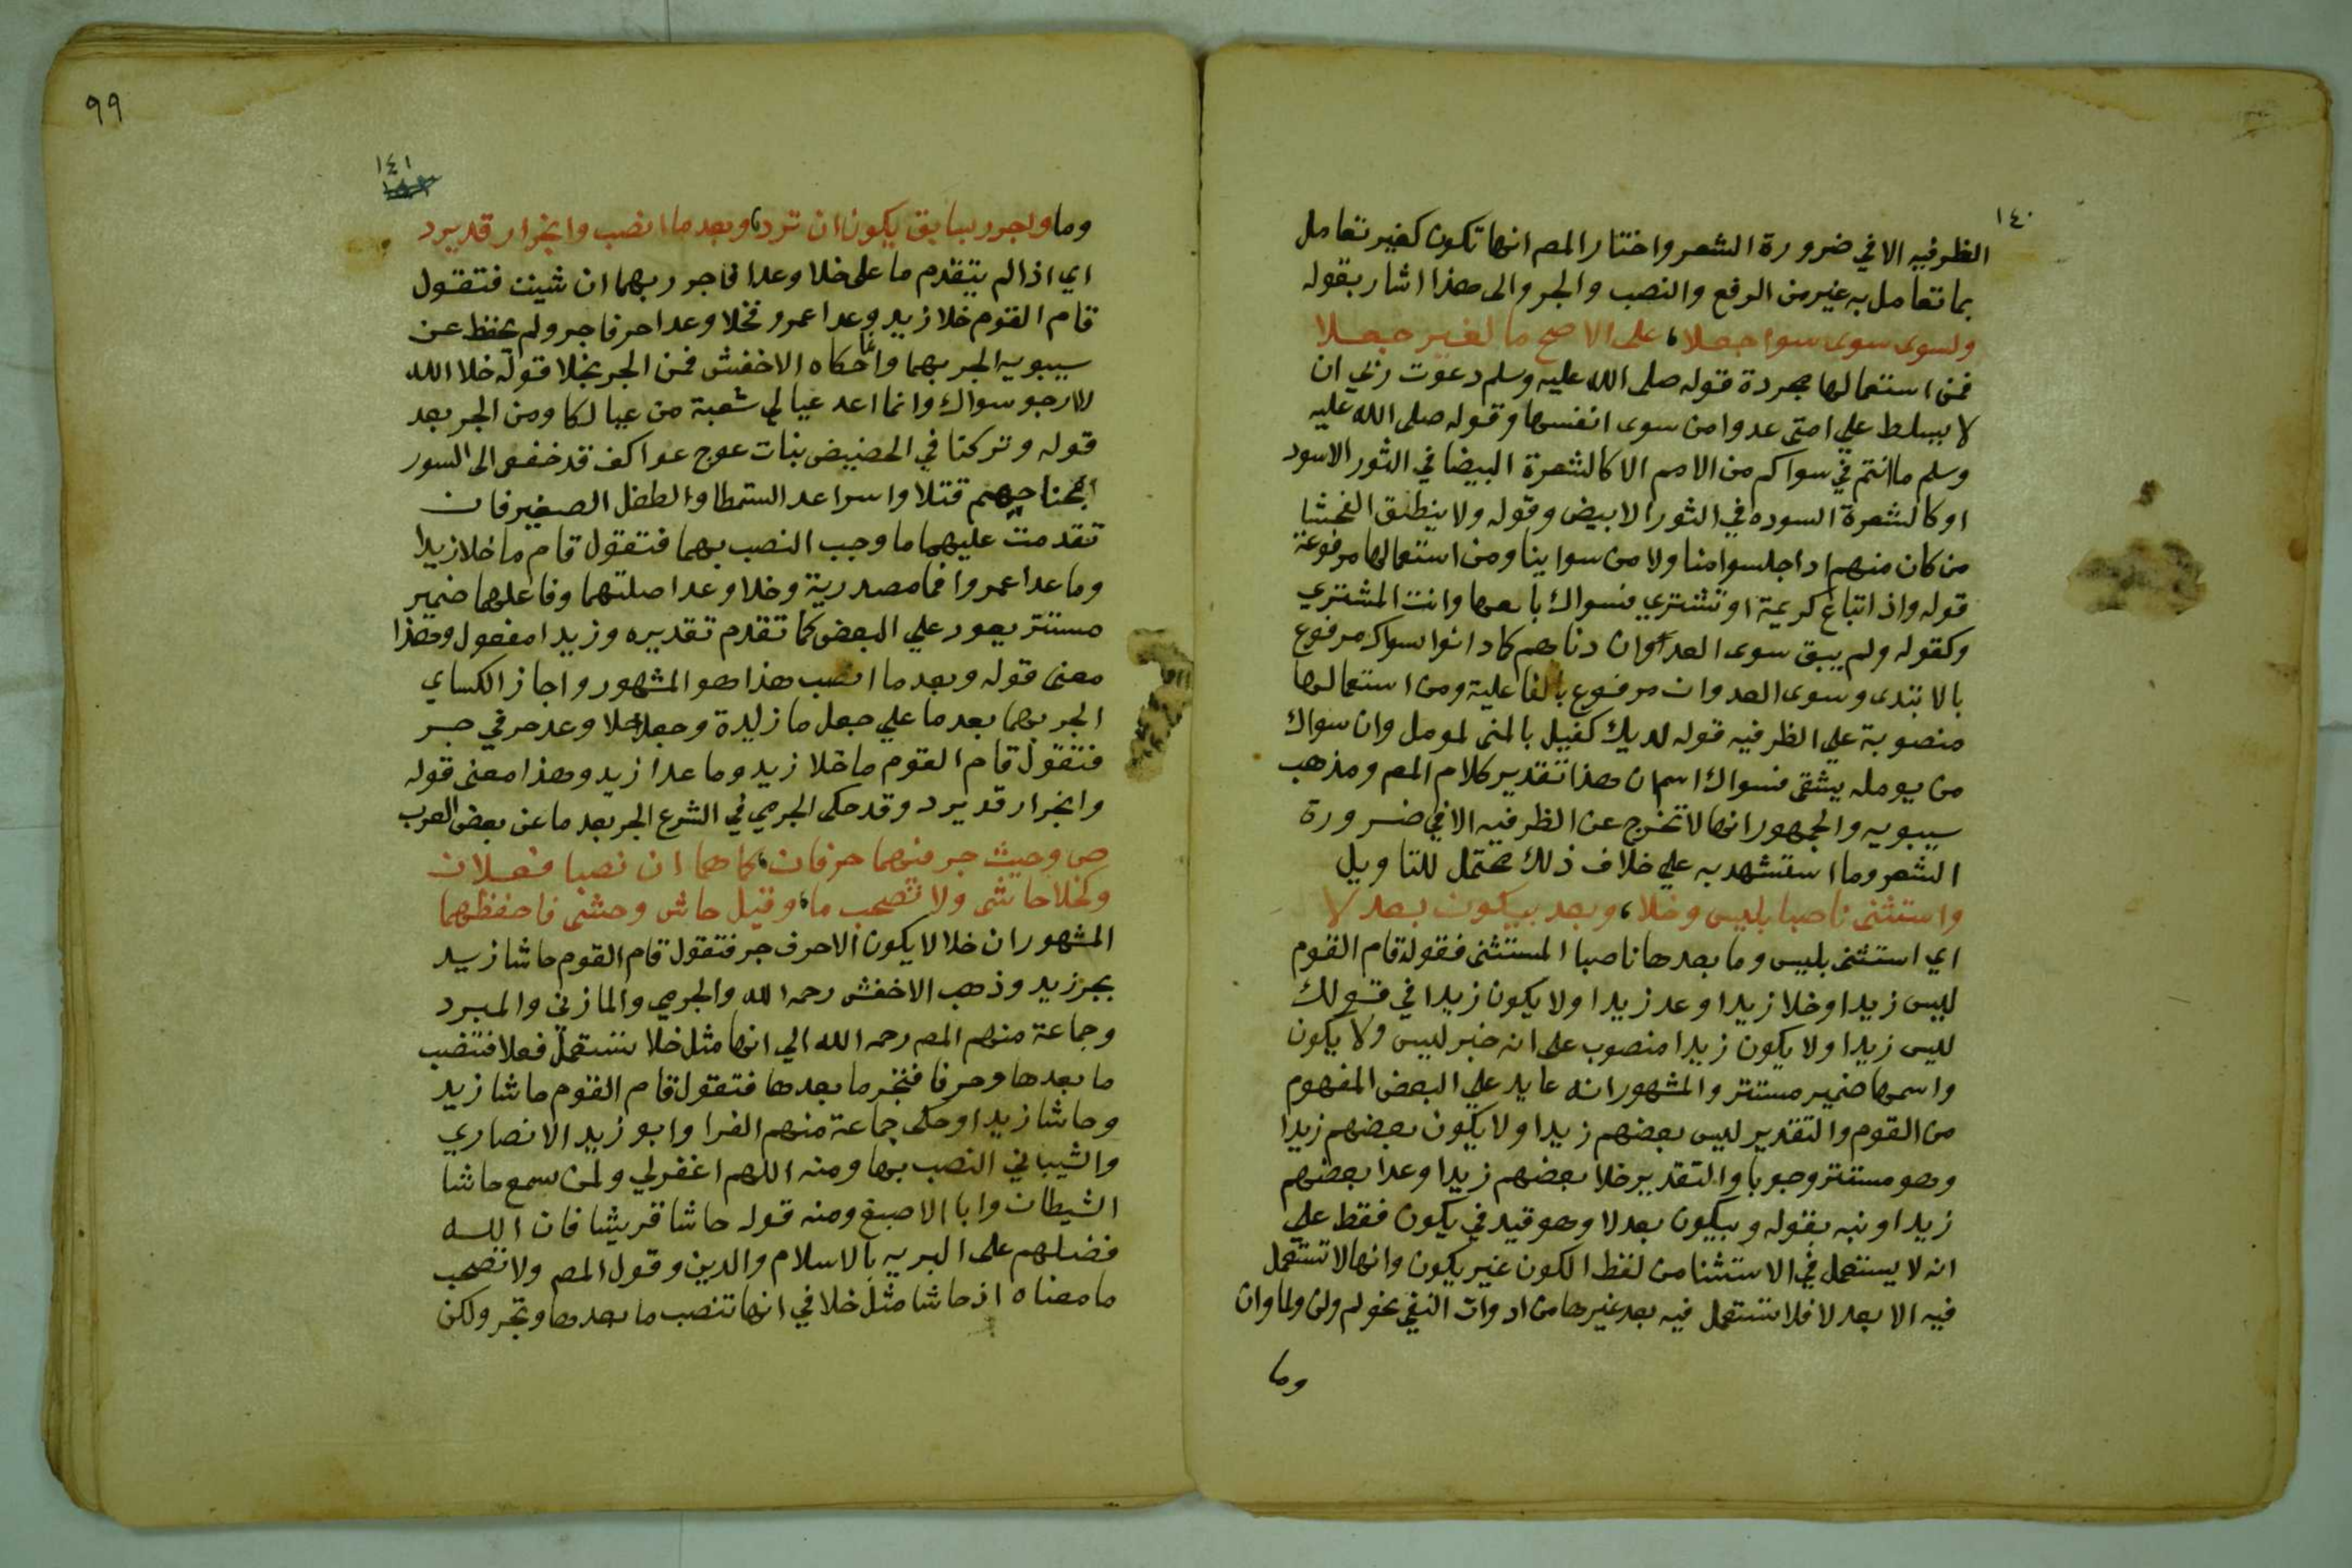 ١٤٠
الظرفيه الا في ضرورة الشعر واختار المص انها تكون كغير تعامل
بما تعامل به غير من الرفع والنصب والجر والى هذا اشار بقوله
ولسوى سوى سوا جعلا، على الاصح ما لغير جعلا
فمن استعمالها مجردة قوله صلى الله عليه وسلم دعوت ربي ان
لا يسلط علي امتى عدوا من سوى انفسها وقوله صلى الله عليه
وسلم ما انتم في سواكم من الامم الا كالشعرة البيضا في الثور الاسود
او كالشعرة السوده في الثور الابيض وقوله ولا ينطلق الفحشا
من كان منهم اذا جلسوا منا ولا من سوائنا ومن استعمالها مرفوعة
قوله واذ اتباع كريمة او تشترى فسواك بايعها وانت المشتري
وكقوله ولم يبق سوى العدوان دناهم كما دانوا سواك مرفوع
بالابتدى وسوى العدوان مرفوع بالفاعلية ومن استعمالها
منصوبة علي الظرفيه قوله لديك كفيل بالمنى لمومل وان سواك
من يومله يشقى فسواك اسم ان هذا تقدير كلام المص ومذهب
سيبويه والجمهور انها لا تخرج عن الظرفيه الا في ضرورة
الشعر وما استشهد به علي خلاف ذلك محتمل للتاويل
واستثنى ناصبا بليس وخلا، وبعد بيكون بعد لا
اي استثنى بليس وما بعدها ناصبا المستثنى فقوله قام القوم
ليس زيدا وخلا زيدا وعد زيدا ولا يكون زيدا في قولك
ليس زيدا ولا يكون زيدا منصوب على انه خبر ليس ولا يكون
واسمها ضمير مستتر والمشهور انه عايد علي البعض المفهوم
من القوم والتقدير ليس بعضهم زيدا ولا يكون بعضهم زيدا
وهو مستتر وجوبا والتقدير خلا بعضهم زيدا وعدا بعضهم
زيدا ونبه بقوله وبيكون بعد لا وهو قيد في يكون فقط علي
انه لا يستعمل في الاستثنا من لفظ الكون غير يكون وانها لا تستعمل
فيه الا بعد لا فلا تستعمل فيه بعد غيرها من ادوات النفي نحو لم ولن ولما وان
وما
٩٩
١٤١
وما واجرر بسابق يكون ان ترد، وبعد ما انصب وانجرار قد يرد
اي اذا لم يتقدم ما على خلا وعدا فاجرر بهما ان شيت فتقول
قام القوم خلا زيد وعدا عمرو فخلا وعدا حرفا جر ولم يحفظ عن
سيبويه الجر بهما وانما حكاه الاخفش فمن الجر بخلا قوله خلا الله
لا ارجو سواك وانما اعد عيالي شعبة من عيالكا ومن الجر بعد
قوله وتركنا في الحضيض بنات عوج عواكف قد خضعن الى السور
ابحنا حيهم قتلا واسرا عد الشمطا والطفل الصغير فان
تقدمت عليهما ما وجب النصب بهما فتقول قام ما خلا زيدا
وما عدا عمروا فما مصدرية وخلا وعدا صلتهما وفاعلهما ضمير
مستتر يعود علي البعض كما تقدم تقديره وزيدا مفعول وهذا
معنى قوله وبعد ما انصب هذا هو المشهور واجاز الكساي
الجر بهما بعد ما علي جعل ما زايدة وجعل خلا وعد حرفي جر
فتقول قام القوم ما خلا زيد وما عدا زيد وهذا معنى قوله
وانجرار قد يرد وقد حكى الجرمي في الشرع الجر بعد ما عن بعض العرب
ص وحيث جر فهما حرفان، كما هما ان نصبا فعلان
وكخلا حاشى ولا تصحب ما، وقيل حاش وحشى فاحفظهما
المشهور ان خلا لا يكون الا حرف جر فتقول قام القوم حاشا زيد
بجر زيد وذهب الاخفش رحمه الله والجرمي والمازني والمبرد
وجماعة منهم المص رحمه الله الي انها مثل خلا تستعمل فعلا فتنصب
ما بعدها وحرفا فتجر ما بعدها فتقول قام القوم حاشا زيد
وحاشا زيدا وحكى جماعة منهم الفرا وابو زيد الانصاري
والشيباني النصب بها ومنه اللهم اغفر لي ولمن سمع حاشا
الشيطان وابا الاصبغ ومنه قوله حاشا قريشا فان الله
فضلهم على البريه بالاسلام والدين وقول المص ولا تصحب
ما معناه اذ حاشا مثل خلا في انها تنصب ما بعدها وتجر ولكن